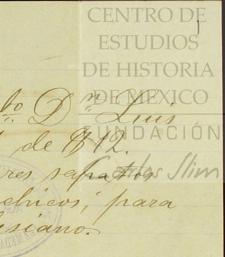 CENTRO DE
ESTUDIOS
DE HISTORIA
DE MÉXICO
FUNDACIÓN
Carlos Slim
to Dn Luis
de $12.
res sapatos
chicos, para
siano.